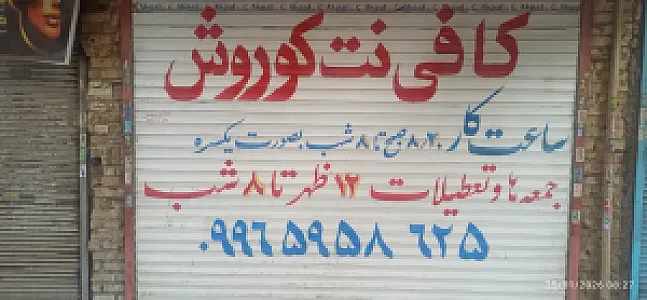 کافی نت کوروش
ساعت کار ۸/۲۰ صبح تا ۸ شب بصورت یکسره
جمعه ها و تعطیلات ۱۲ ظهر تا ۸ شب
۰۹۹۶۵۹۵۸۶۲۵